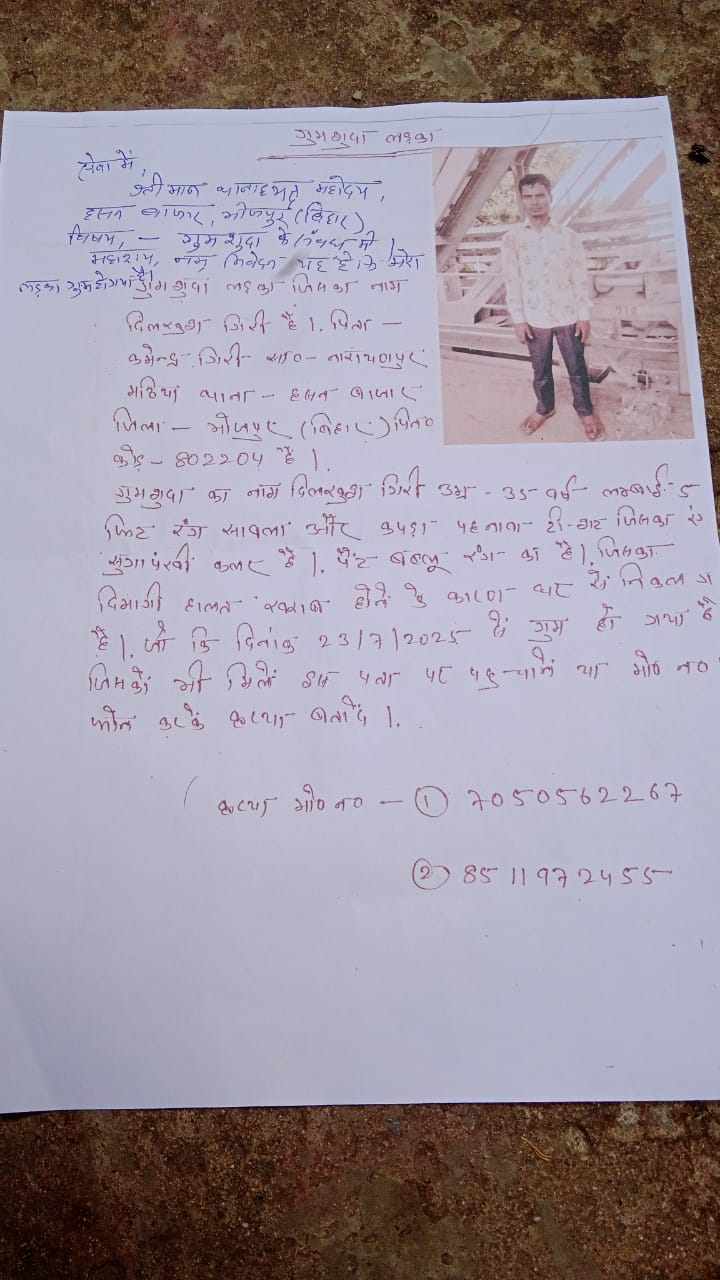 गुमशुदा लड़का
सेवा में,
श्री मान थानाध्यक्ष महोदय,
हसन बाजार, भोजपुर (बिहार)
विषय, - गुमशुदा के संबंध में।
महाशय, नम्र निवेदन यह है कि मेरा
लड़का गुम हो गया है।
गुमशुदा लड़का जिसका नाम
दिलखुश गिरी है। पिता -
गिरी सा०- नारायणपुर
मठिया थाना - हसन बाजार
जिला - भोजपुर (बिहार) पिन
कोड - 802204 है।
गुमशुदा का नाम दिलखुश गिरी उम्र - 35 वर्ष लम्बाई- 5
फिट रंग सावला और कपड़ा पहनावा टी-शर्ट जिसका रंग
सुगा पंखी कलर है। पैंट बब्लू रंग का है। जिसका
दिमागी हालत खराब होने के कारण घर से निकल ग
है। जो कि दिनांक 23/7/2025 से गुम हो गया है
जिसको भी मिले इस पता पर पहुचाने या मो० न०
फोन करके कृप्या बतादे।
कृप्या मो० न० - ① 7050562267
② 8511972455